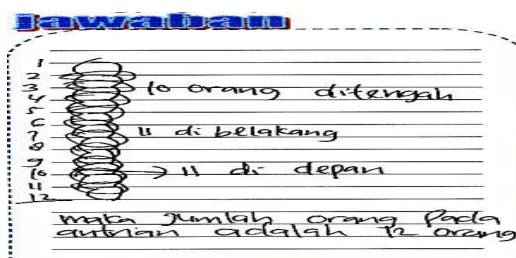 Jawaban
1
2
3
4
5
6
7
8
9
10
11
12
10 orang ditengah
11 di belakang
11 di depan
maka jumlah orang pada
antrian adalah 12 orang